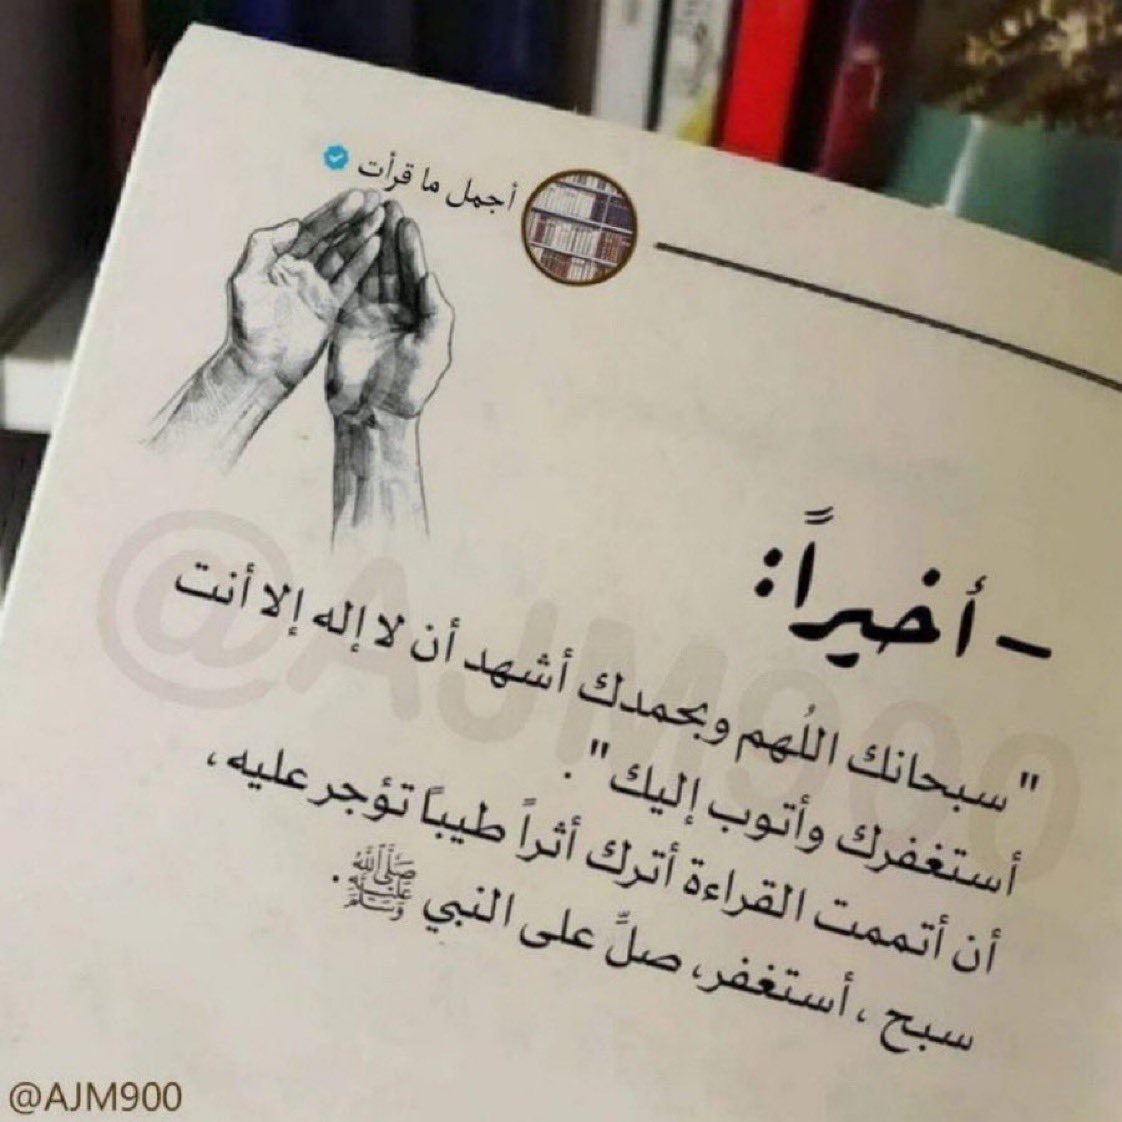 أجمل ما قرأت
- أخيراً:
" سبحانك اللُهم وبحمدك أشهد أن لا إله إلا أنت
أستغفرك وأتوب إليك" .
أن أتممت القراءة أترك أثراً طيباً تؤجر عليه ،
سبح ، أستغفر، صلِّ على النبي ﷺ .
@AJM900
@AJM900